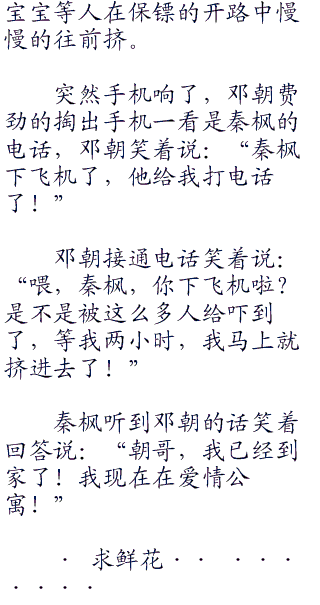 宝宝等人在保镖的开路中慢
慢的往前挤。
突然手机响了，邓朝费
劲的掏出手机一看是秦枫的
电话，邓朝笑着说：“秦枫
下飞机了，他给我打电话
了！”
邓朝接通电话笑着说：
“喂，秦枫，你下飞机啦？
是不是被这么多人给吓到
了，等我两小时，我马上就
挤进去了！”
秦枫听到邓朝的话笑着
回答说：“朝哥，我已经到
家了！我现在在爱情公
寓！”
· 求鲜花·· ···
····